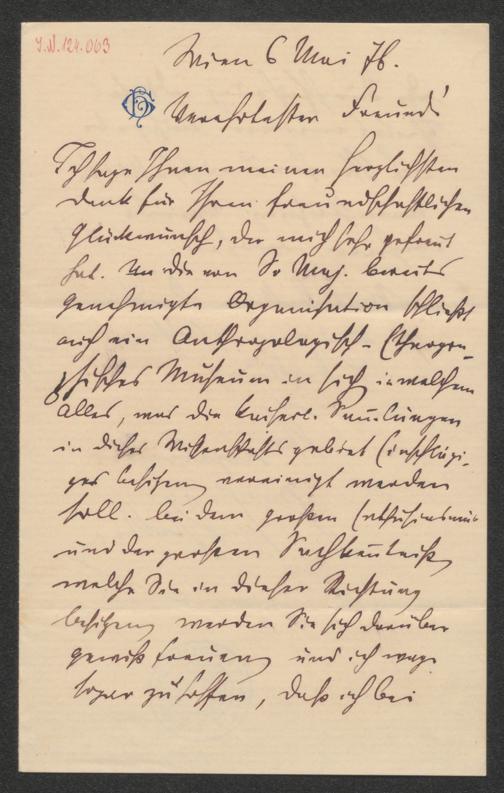 I.N. 124.063
Wien 6 Mai 76.
Verehrtester Freund!
Ich sage Ihnen meinen herzlichsten
Dank für Ihren freundschaftlichen
Glückwunsch, der mich sehr gefreut
hat. Die von Sr Maj. bereits
genehmigte Organisation schließt
auch ein Anthropologisch-Ethnogra-
phisches Museum in sich in welchem
alles, was die kaiserl. Sammlungen
in dieses Wissenschaftsgebiet Einschlägi-
ges besitzen, vereinigt werden
soll. bei dem großen Enthusiasmus
und der großen Sachkentniß,
welche Sie in dieser Richtung
besitzen, werden Sie sich darüber
gewiß freuen, und ich wage
sogar zu hoffen, daß ich bei